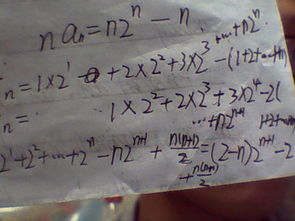 n aₙ = n2ⁿ - n
ₙ = 1×2¹ + 2×2² + 3×2³ ... + n2ⁿ - (1+2+...+n)
ₙ = 1×2² + 2×2³ + 3×2⁴ ... + n2ⁿ⁺¹ - 2(1+2+...+n)
2¹+2²+...+2ⁿ - n2ⁿ⁺¹ + n(n+1)/2 = (2-n)2ⁿ⁺¹ - 2
+ n(n+1)/2